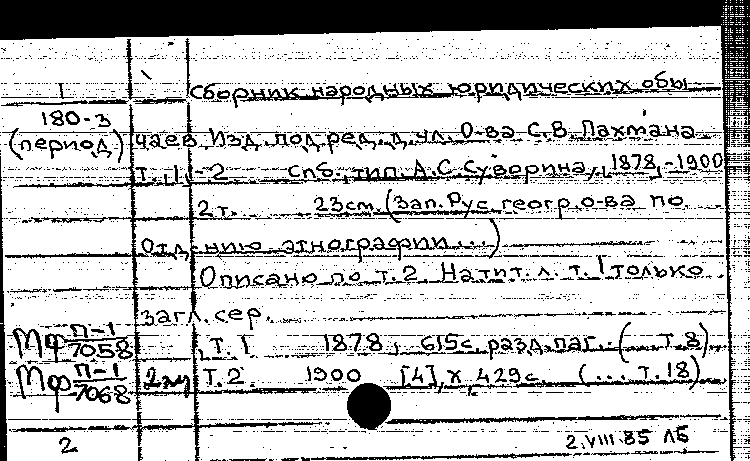 1 Сборник народных юридических обы-
180-3
(период) чаев. Изд. под ред. д. чл. О-ва С.В. Пахмана
Т. 1-2 Спб., тип. А.С. Суворина, 1878-1900
2 т. 23 см. (Зап. Рус. геогр. о-ва по
отд-нию этнографии...)
Описано по т. 2. На тит. л. т. 1 только
загл. сер.
Мф П-1/7058 Т. 1 1878, 615 с. разд. паг. (... Т. 8)
Мф П-1/7068 Т. 2. 1900 [4], X, 429 с. (... Т. 18)
2 2.VIII.85 ЛБ